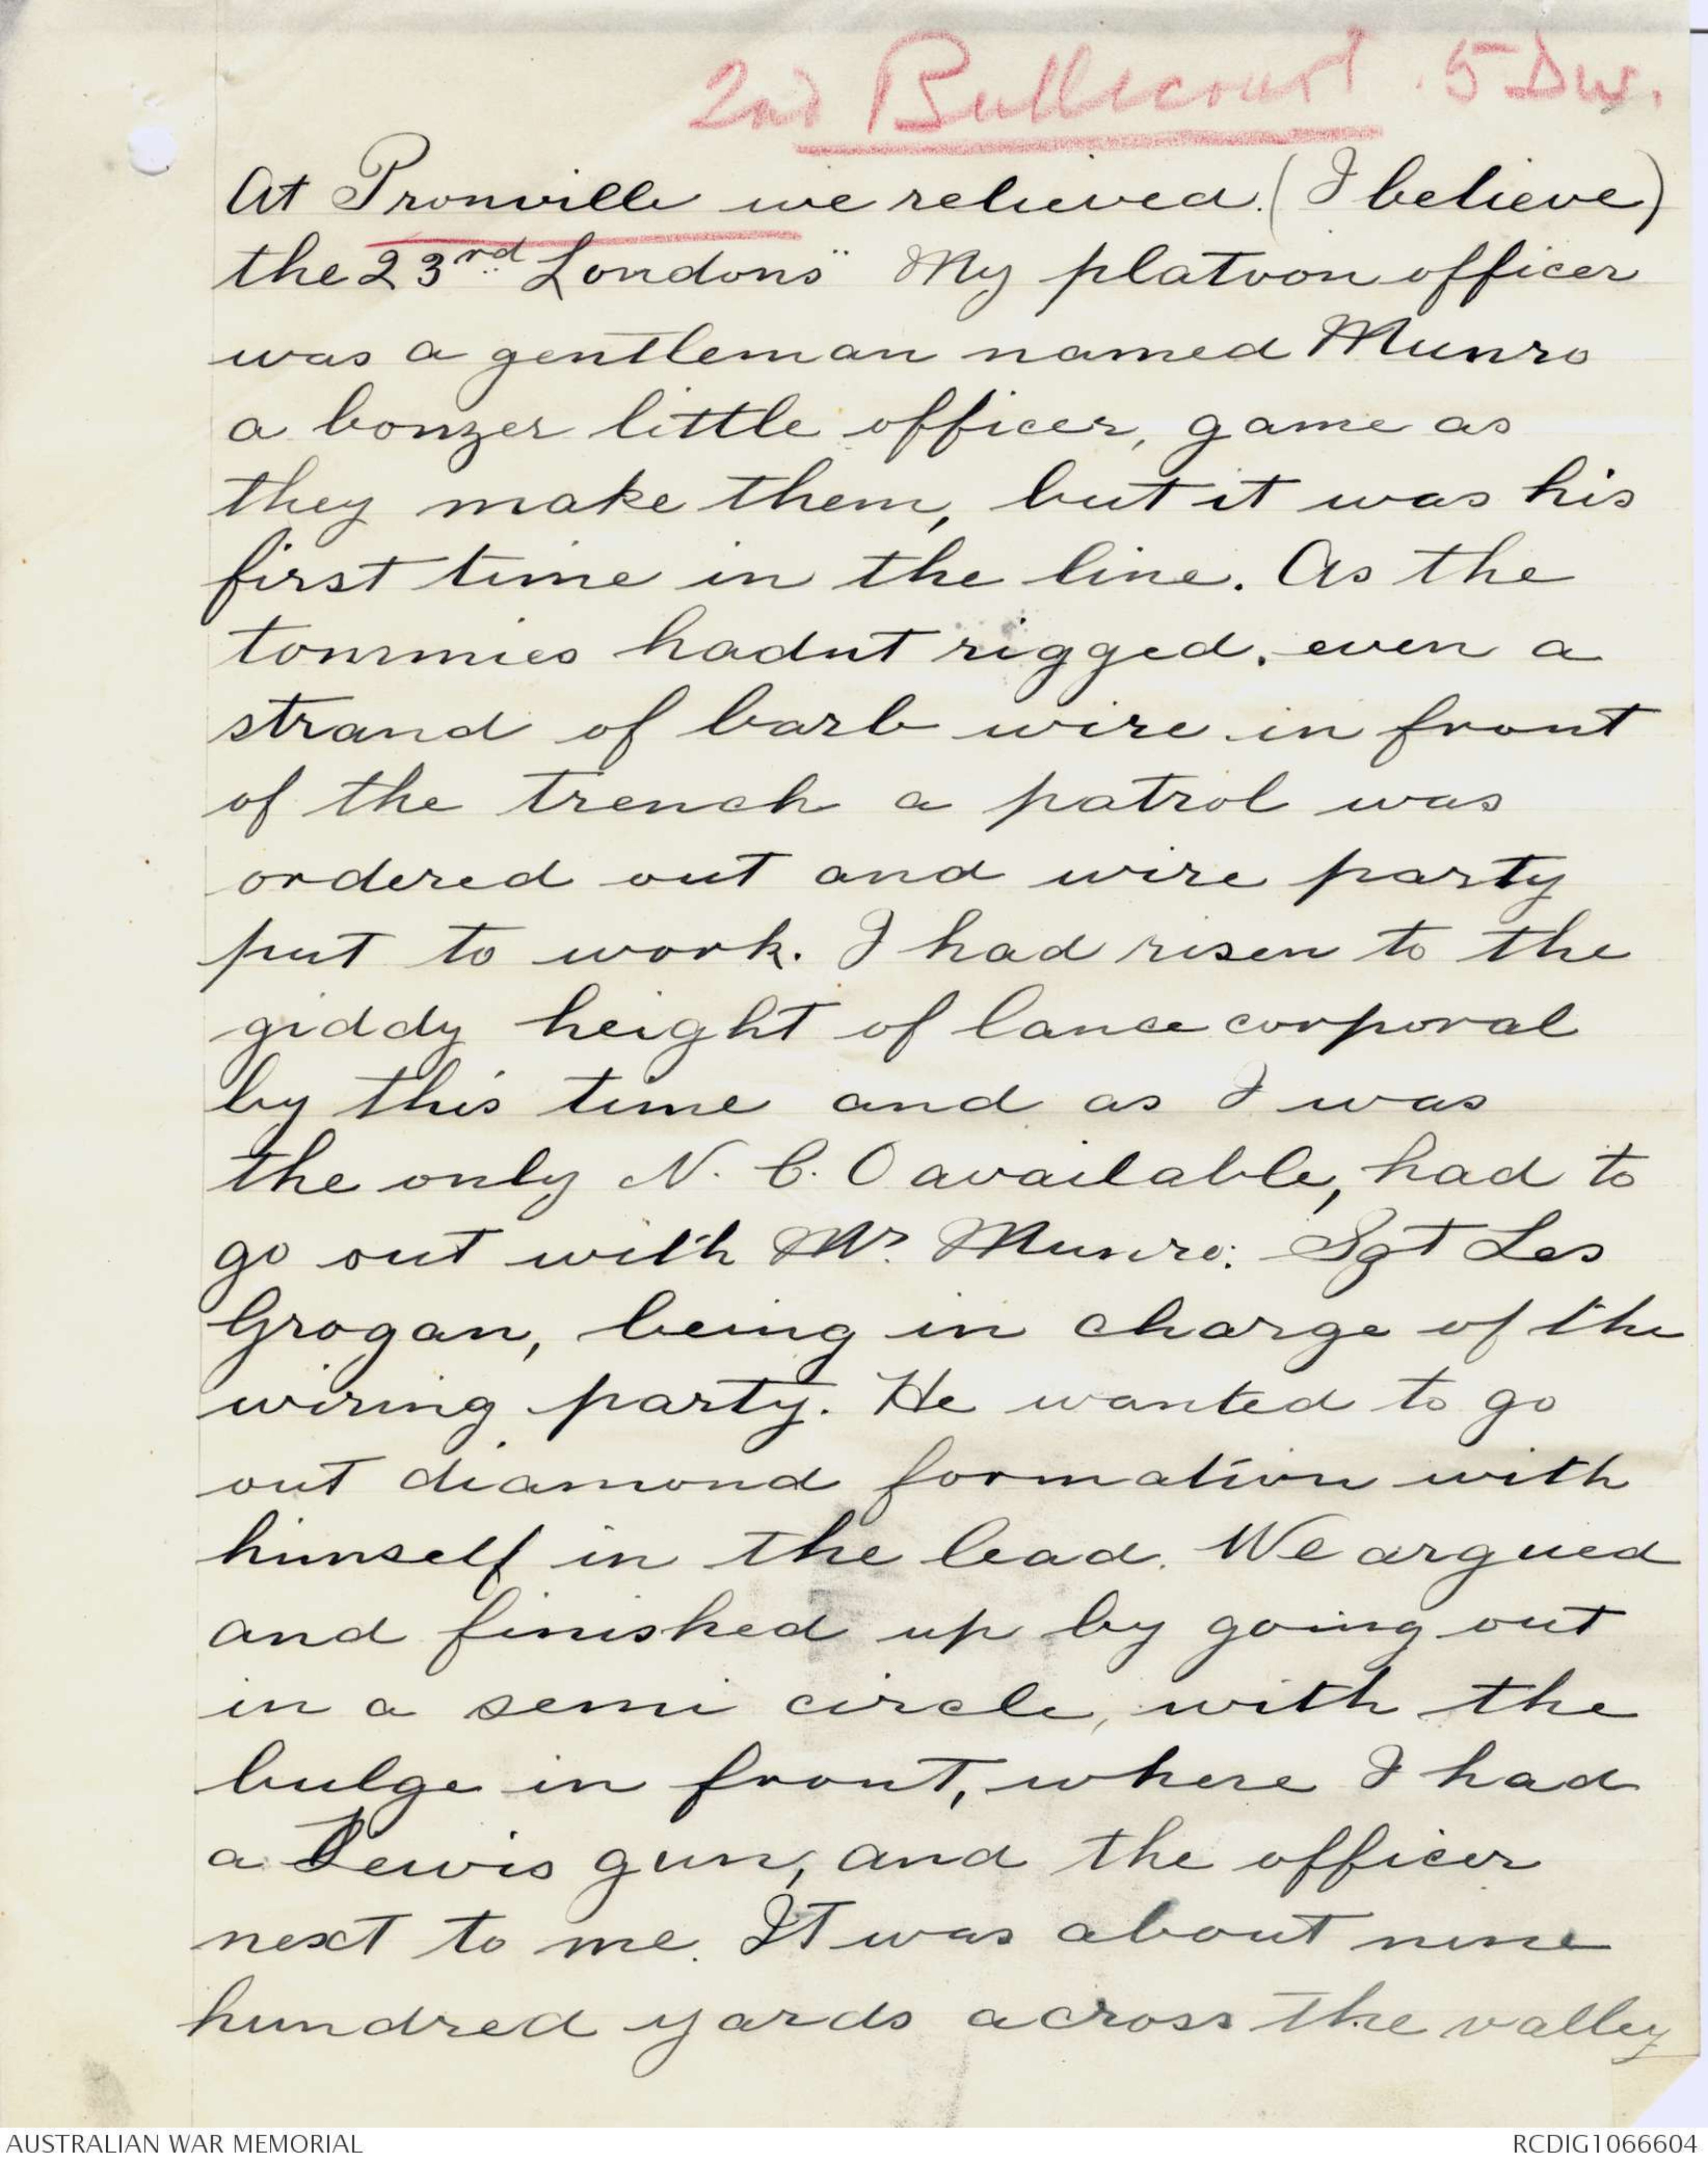 2nd Bullecourt. 5 Div.
At Pronville we relieved (I believe)
the 23rd Londons" My platoon officer
was a gentleman named Munro
a bonzer little officer, game as
they make them, but it was his
first time in the line. As the
tommies hadnt rigged, even a
strand of barb wire in front
of the trench a patrol was
ordered out and wire party
put to work. I had risen to the
giddy height of lance corporal
by this time and as I was
the only N. C. O available, had to
go out with Mr. Munro: Sgt Les
Grogan, being in charge of the
wiring party. He wanted to go
out diamond formation with
himself in the lead. We argued
and finished up by going out
in a semi circle, with the
bulge in front, where I had
a Lewis gun, and the officer
next to me. It was about nine
hundred yards across the valley
AUSTRALIAN WAR MEMORIAL
RCDIG1066604